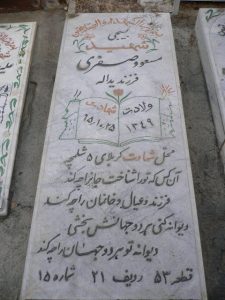 بسیجی
شهید
مسعود صفری
فرزند یداله
ولادت شهادت
۱۳۴۹ ۶۵،۱۰،۲۵
محل شهادت کربلای ۵ شلمچه
آن کس که تو را شناخت جان را چه کند
فرزند و عیال و خانمان را چه کند
دیوانه کنی هر دو جهانش بخشی
دیوانه تو هر دو جهان را چه کند
قطعه ۵۳ ردیف ۲۱ شماره ۱۵